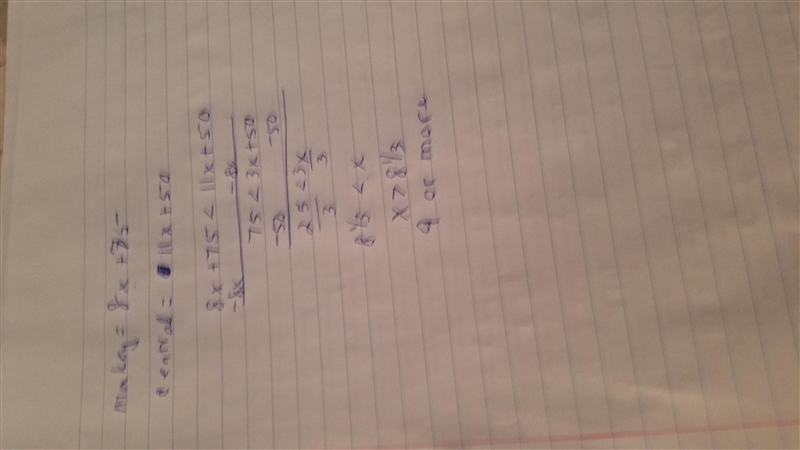 makey = 8x + 75
central = 11x + 50
8x + 75 < 11x + 50
-8x -8x
75 < 3x + 50
-50 -50
25 < 3x
3 3
8 1/3 < x
x > 8 1/3
9 or more